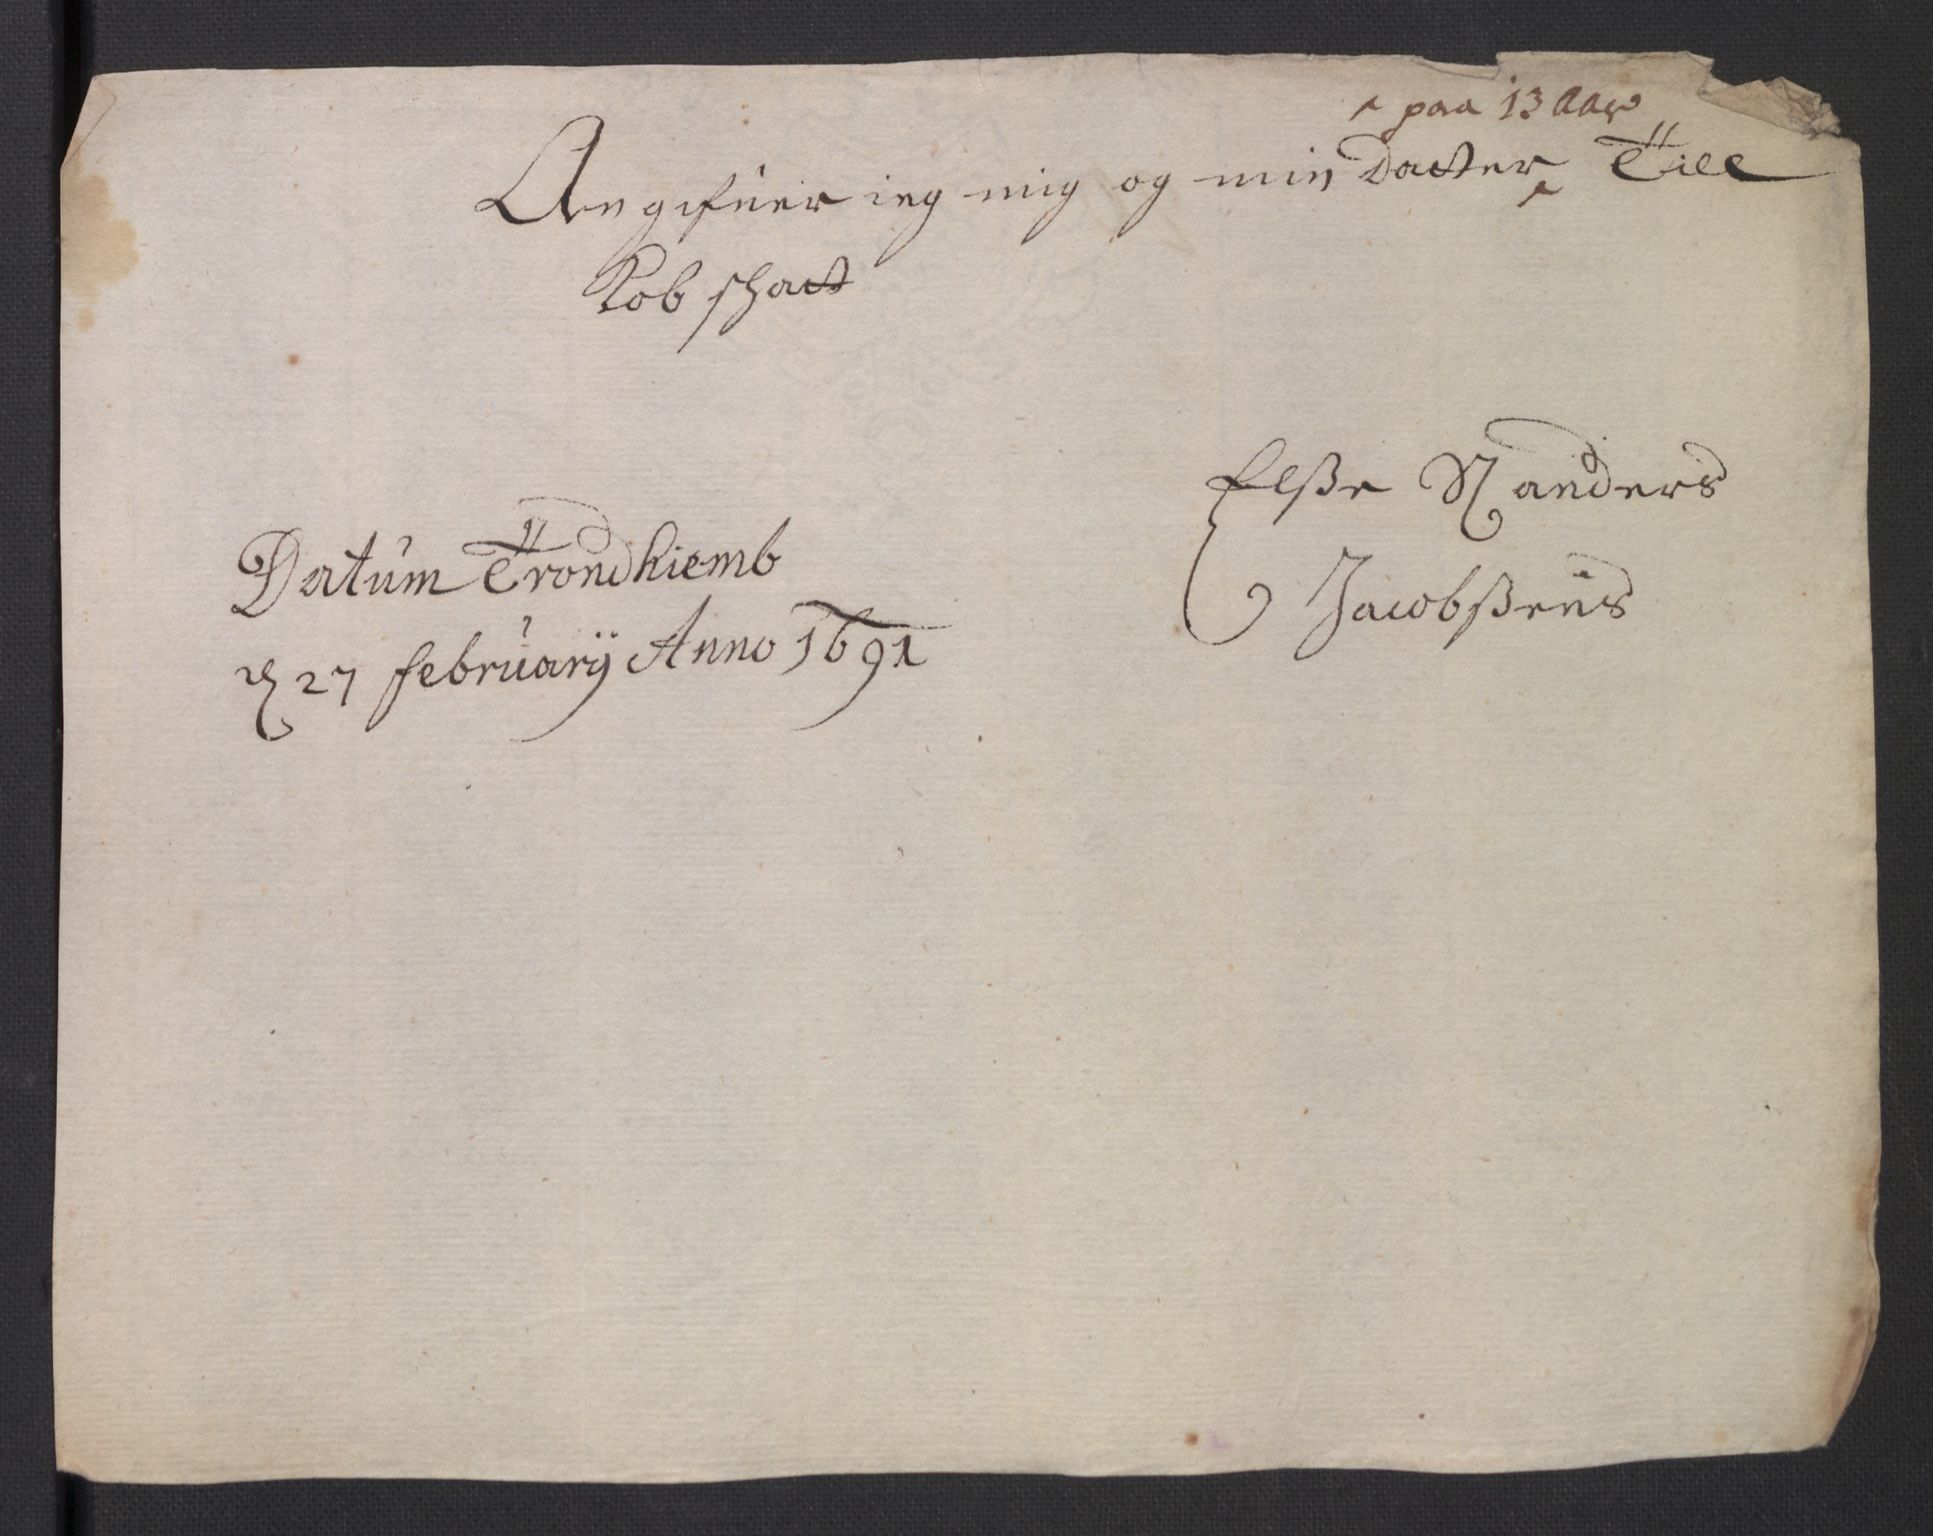 ^ paa 13 aar
Angifuer ieg mig og min Dacter ^ Till
Kobschact
Elße Sanders
Jacobßens
Datum Trondhiemb
d 27 februarij Anno 1691